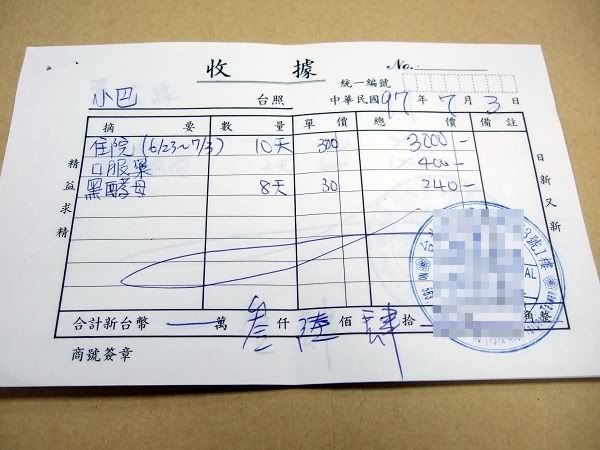 收據 No.
統一編號
小巴 台照 中華民國97年7月3日
摘要 數量 單價 總價 備註
住院 (6/23~7/3) 10天 300 3000-
口服藥 400-
黑酵母 8天 30 240-
精益求精
日新又新
3號1樓
合計新台幣 萬叁仟陸佰肆拾 角整
商號簽章